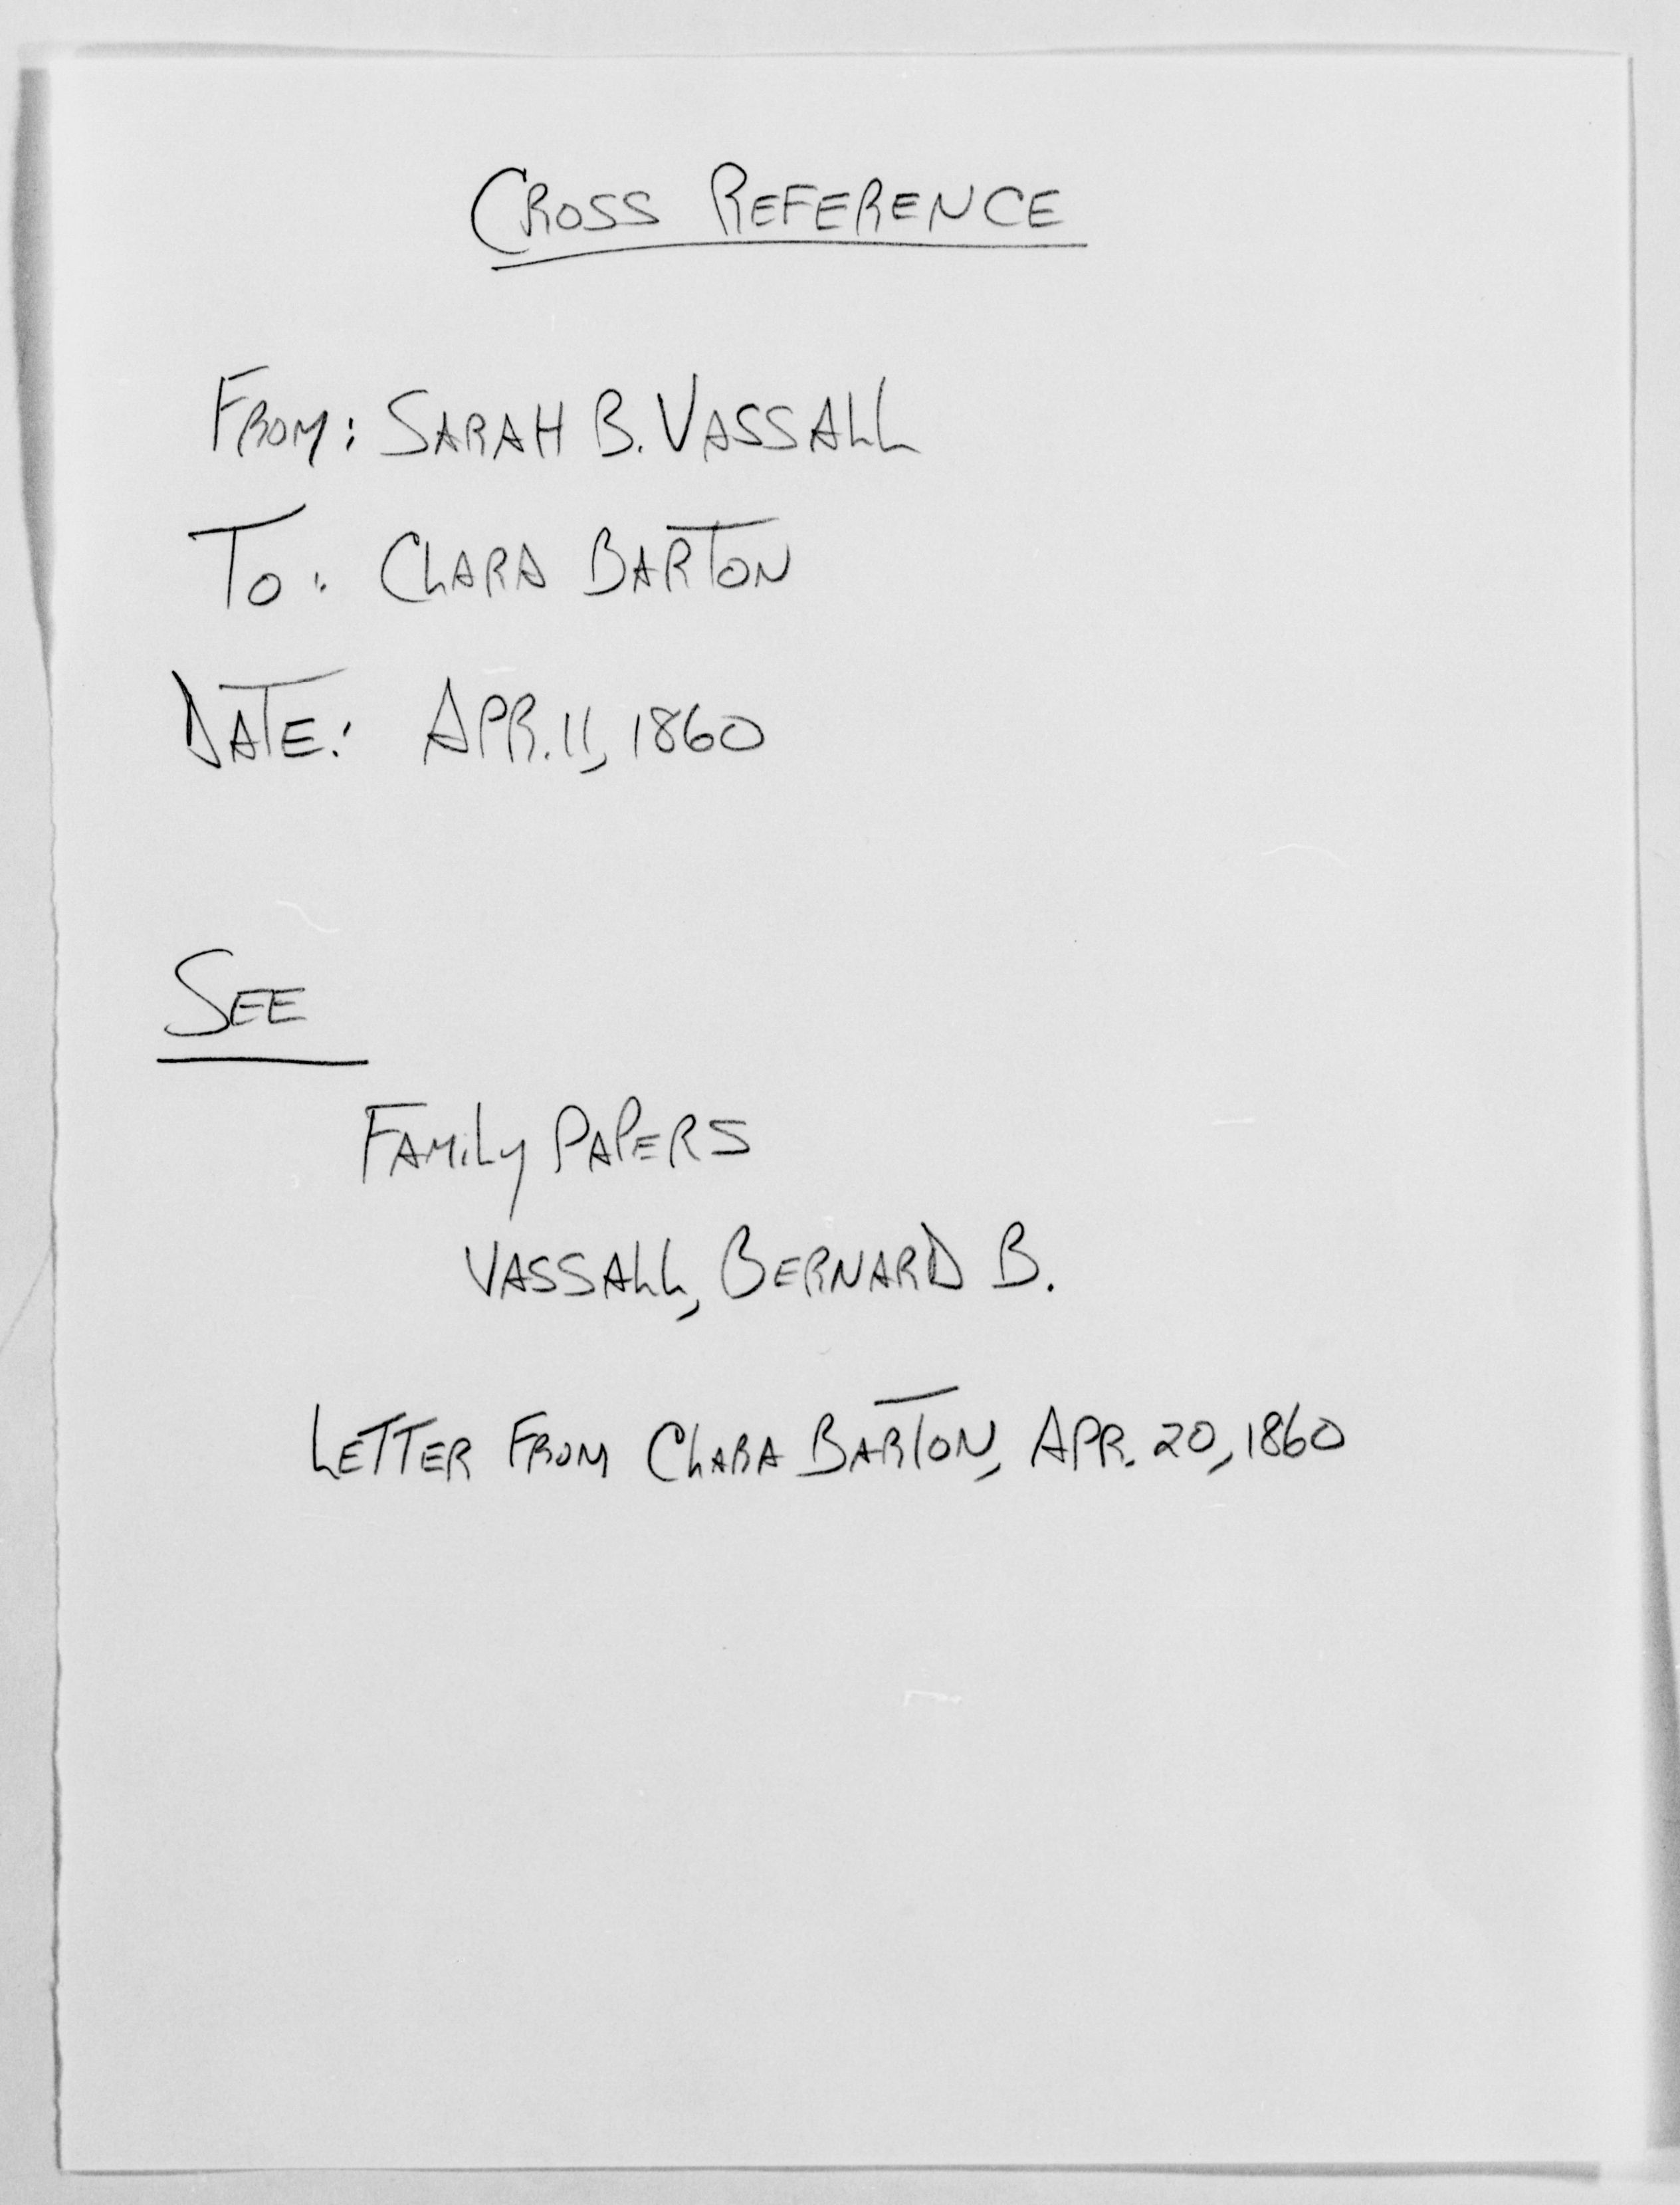 CROSS REFERENCE
FROM: SARAH B. VASSALL
TO: CLARA BARTON
DATE: APR. 11, 1860
SEE
FAMILY PAPERS
VASSALL, BERNARD B.
LETTER FROM CLARA BARTON, APR. 20, 1860